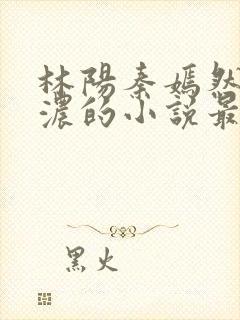 林陽秦嫣然
濃的小說最
黑火